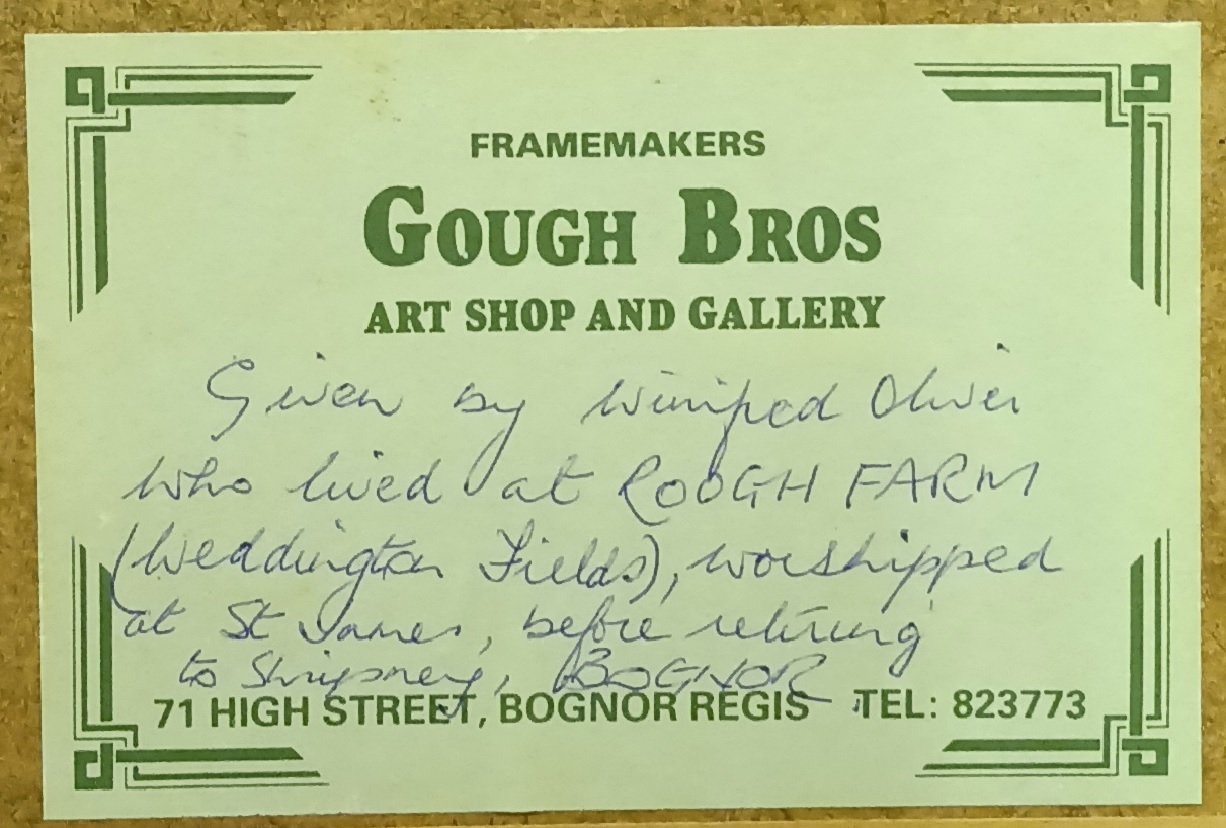 FRAMEMAKERS
GOUGH BROS
ART SHOP AND GALLERY
Given by Winifred Oliver
who lived at ROUGH FARM
(Weddington Fields), worshipped
at St James, before retiring
to Shripney, BOGNOR
71 HIGH STREET, BOGNOR REGIS TEL: 823773